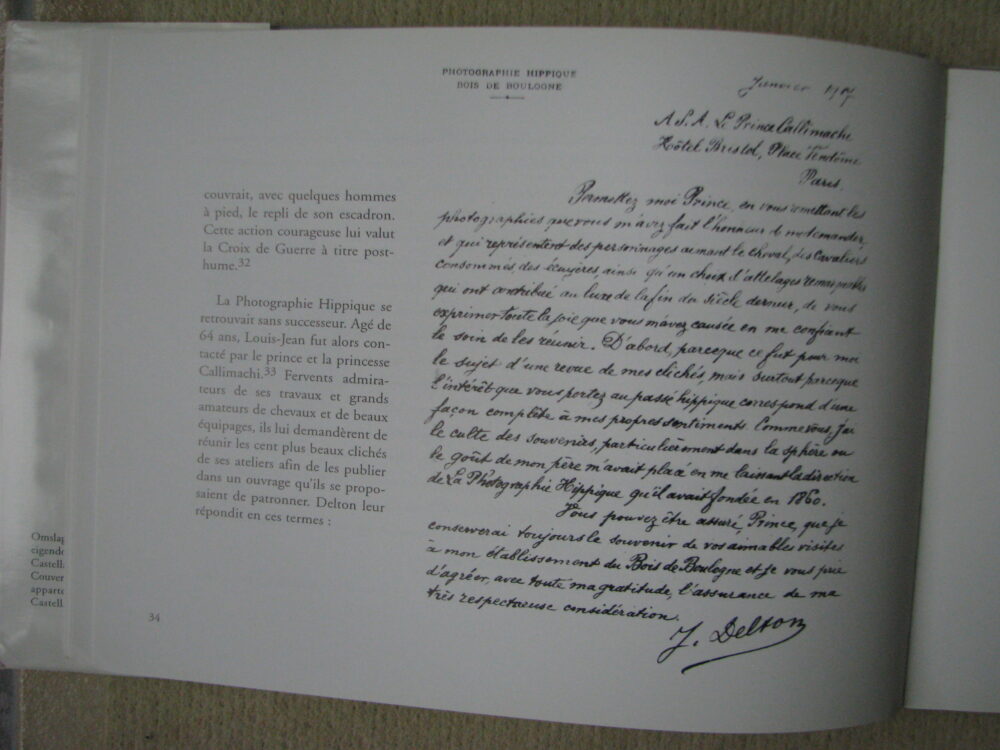 PHOTOGRAPHIE HIPPIQUE
BOIS DE BOULOGNE
Janvier 1917
A S. A. Le Prince Callimache
Hôtel Bristol, Place Vendôme
Paris.
couvrait, avec quelques hommes
à pied, le repli de son escadron.
Cette action courageuse lui valut
la Croix de Guerre à titre post-
hume.32
La Photographie Hippique se
retrouvait sans successeur. Agé de
64 ans, Louis-Jean fut alors con-
tacté par le prince et la princesse
Callimachi.33 Fervents admira-
teurs de ses travaux et grands
amateurs de chevaux et de beaux
équipages, ils lui demandèrent de
réunir les cent plus beaux clichés
de ses ateliers afin de les publier
dans un ouvrage qu'ils se propo-
saient de patronner. Delton leur
répondit en ces termes :
Permettez moi Prince, en vous remettant les
photographies que vous m'avez fait l'honneur de me demander,
et qui représentent des personnages aimant le cheval, des Cavaliers
consommés, des écuyères, ainsi qu'un choix d'attelages remarquables
qui ont contribué au luxe de la fin du siècle dernier, de vous
exprimer toute la joie que vous m'avez causée en me confiant
le soin de les réunir. D'abord, parceque ce fut pour moi
le sujet d'une revue de mes clichés, mais surtout parceque
l'intérêt que vous portez au passé hippique correspond d'une
façon complète à mes propres sentiments. Comme vous, j'ai
le culte des souvenirs, particulièrement dans la sphère ou
le goût de mon père m'avait placé en me laissant la direction
de La Photographie Hippique qu'il avait fondée en 1860.
Vous pouvez être assuré, Prince, que je
conserverai toujours le souvenir de vos aimables visites
à mon établissement du Bois de Boulogne et je vous prie
d'agréer, avec toute ma gratitude, l'assurance de ma
très respectueuse considération.
J. Delton
34
Omslag
eigend
Castell
Couver
apparte
Castell